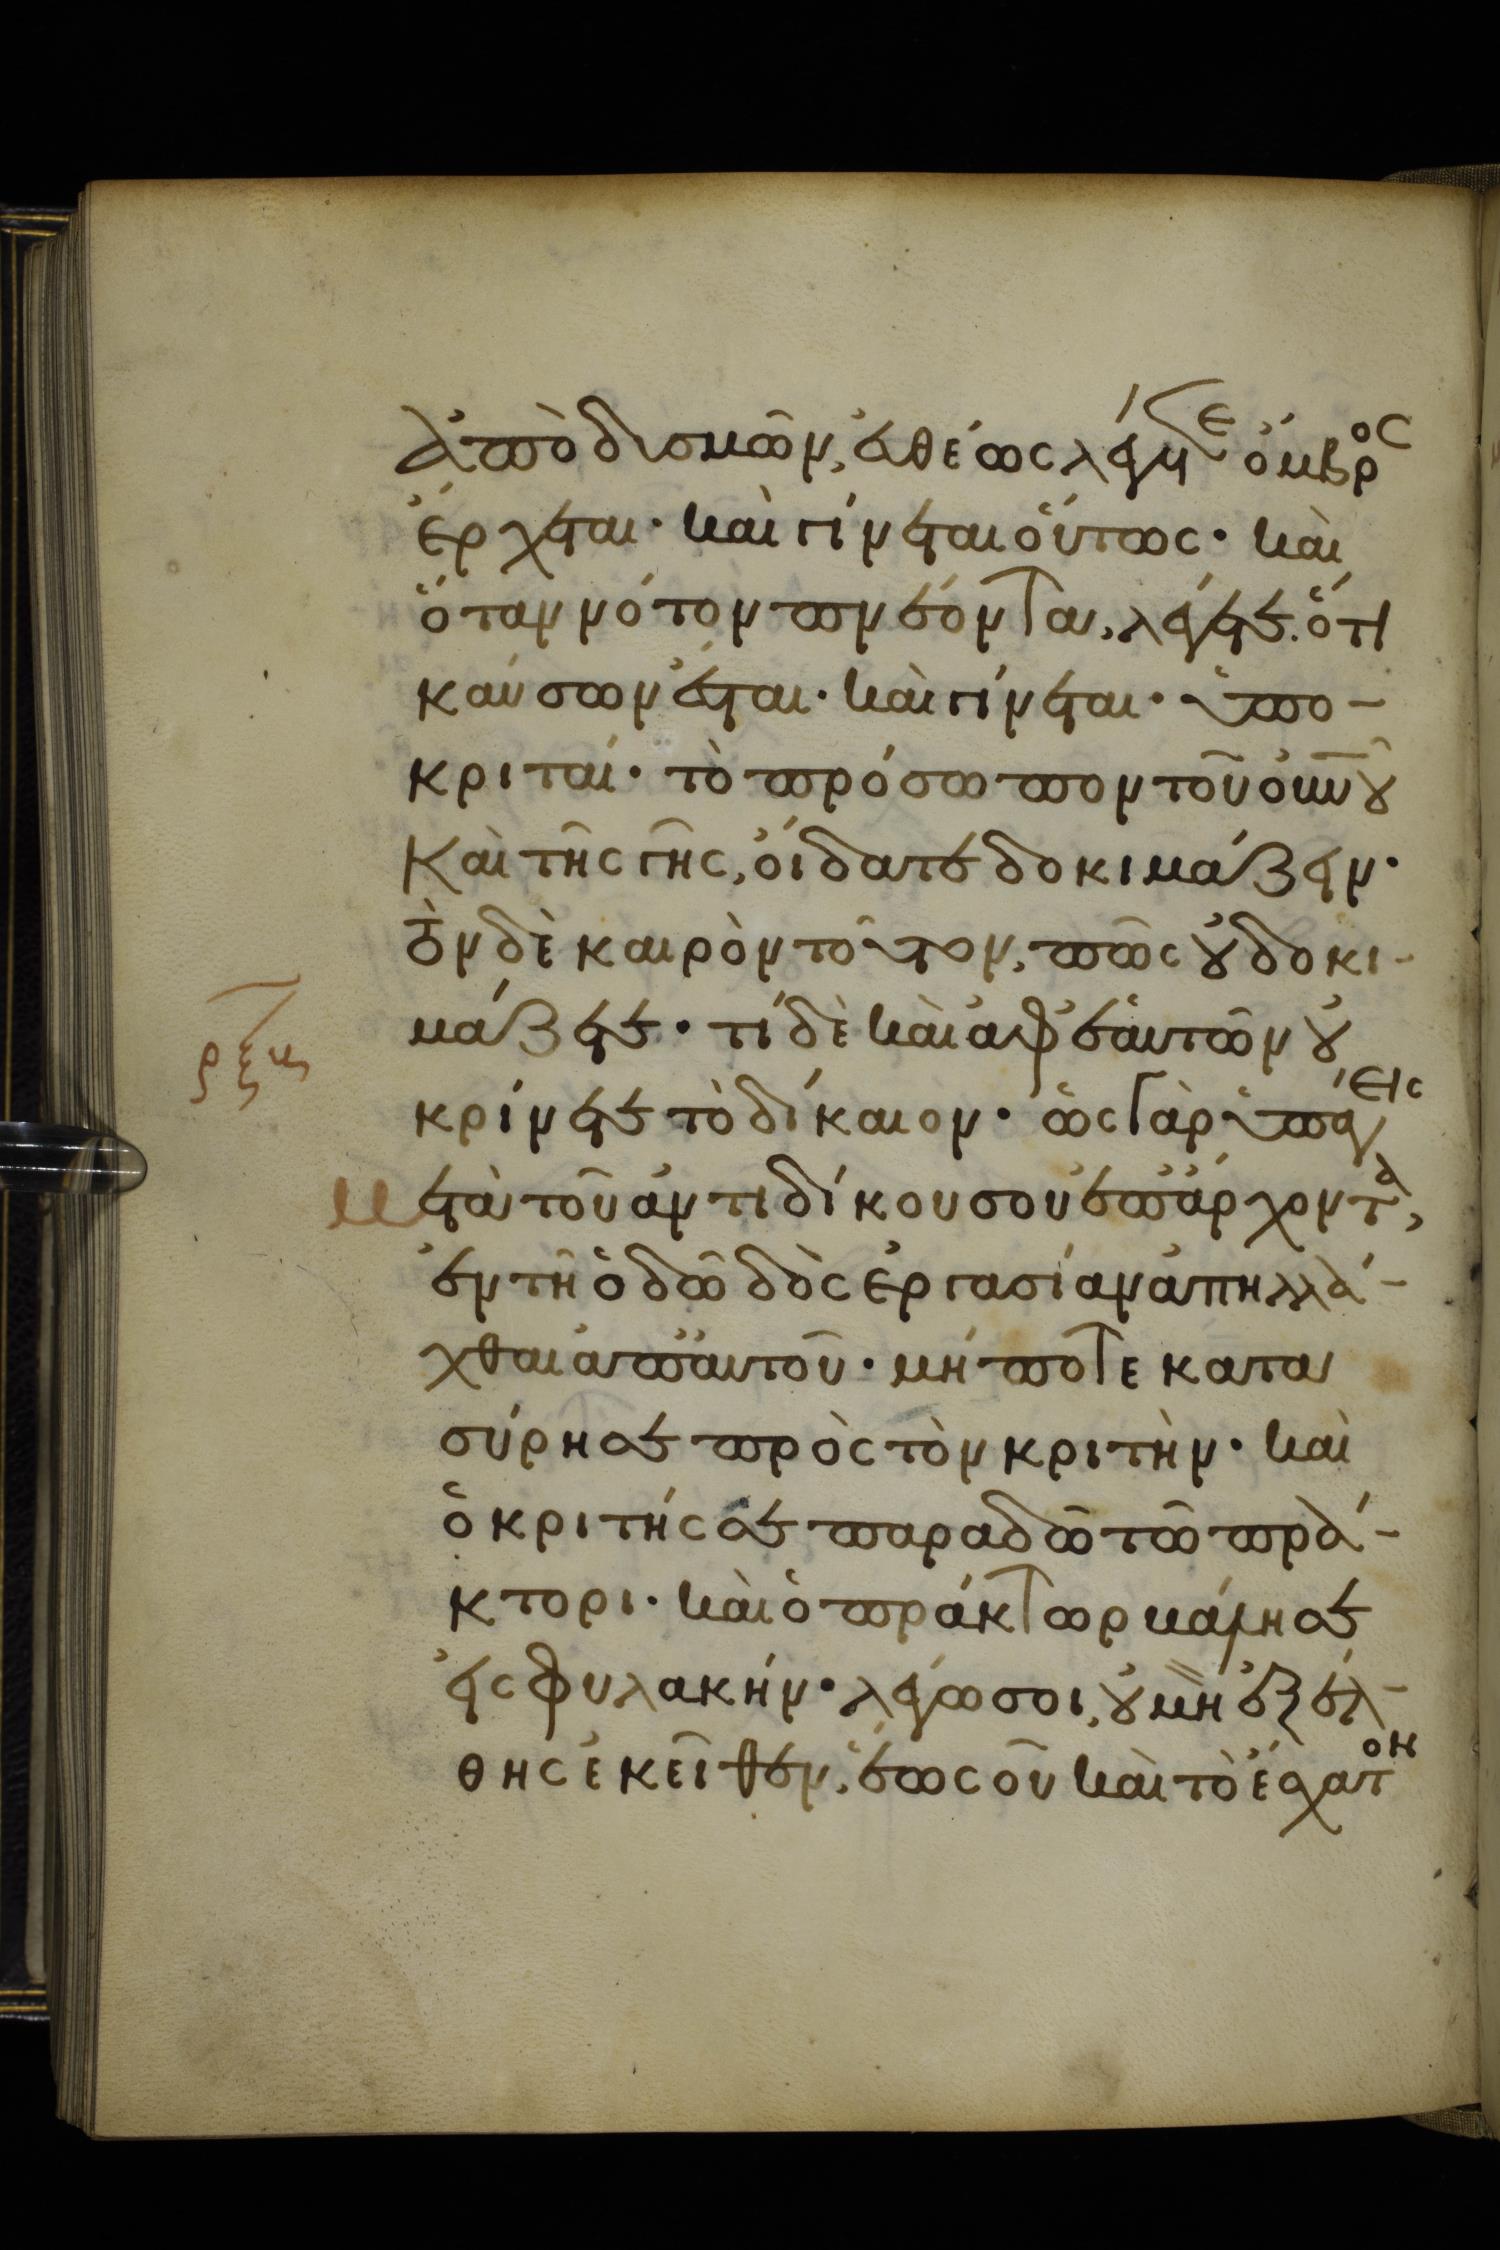 ἀπὸ δυσμῶν, εὐθέως λέγετε ὄμβρος
ἔρχεται· καὶ γίνεται οὕτως· καὶ
ὅταν νότον πνέοντα, λέγετε· ὅτι
καύσων ἔσται· καὶ γίνεται· ὑπο-
κριταί· τὸ πρόσωπον τοῦ οὐνου
καὶ τῆς γῆς, οἴδατε δοκιμάζειν·
τὸν δὲ καιρὸν τοῦτον, πῶς οὐ δοκι-
μάζετε· τί δὲ καὶ ἀφ' ἑαυτῶν οὐ
ρξς
κρίνετε τὸ δίκαιον· ὡς γὰρ ὑπάγεις
μετὰ τοῦ ἀντιδίκου σου ἐπ' ἄρχοντα,
ἐν τῇ ὁδῷ δὸς ἐργασίαν ἀπηλλά-
χθαι ἀπ' αὐτοῦ· μήποτε κατα
σύρῃ σε πρὸς τὸν κριτὴν· καὶ
ὁ κριτής σε παραδῷ τῷ πρά-
κτορι· καὶ ὁ πράκτωρ βάλῃ σε
εἰς φυλακήν· λέγω σοι, οὐ μὴ ἐξέλ-
θῃς ἐκεῖθεν, ἕως οὗ καὶ τὸ ἔσχατον